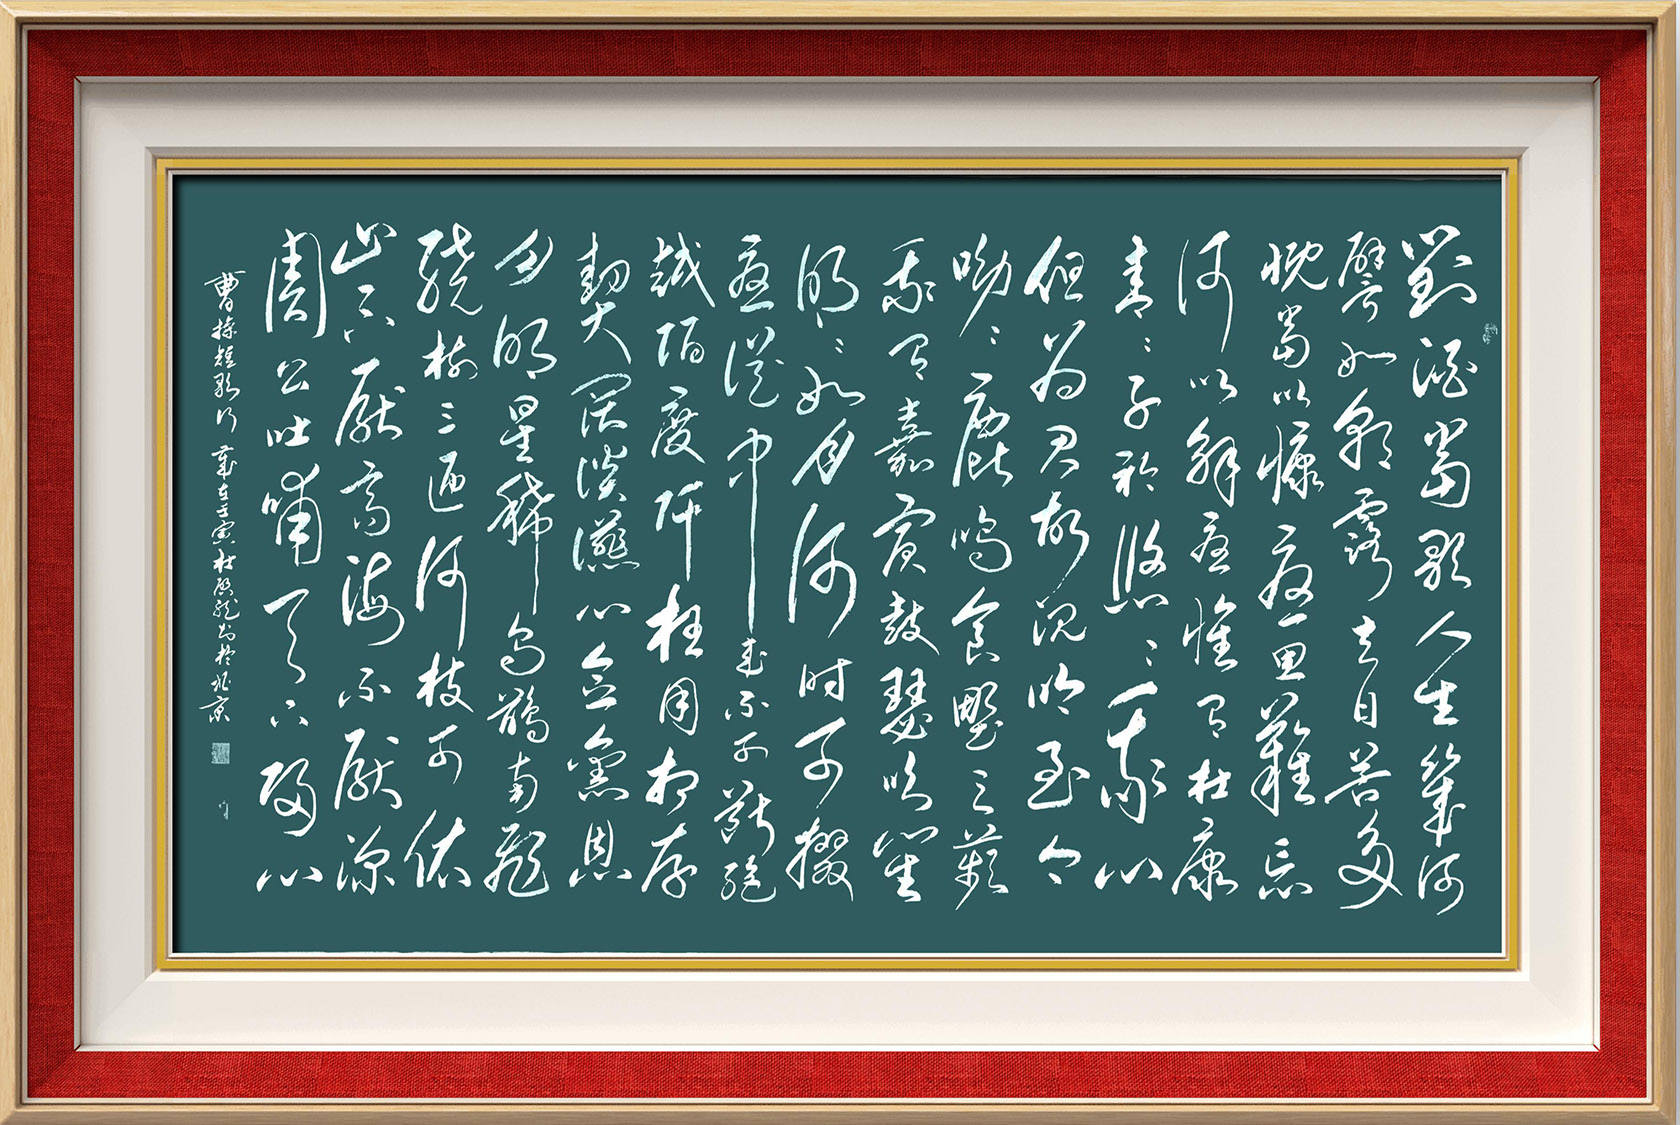 對酒當歌人生幾何
譬如朝露去日苦多
慨當以慷憂思難忘
何以解憂惟有杜康
青〻子衿悠〻我心
但為君故沉吟至今
呦〻鹿鳴食野之蘋
我有嘉賓鼓瑟吹笙
明〻如月何時可掇
憂從中來不可斷絕
越陌度阡枉用相存
契闊談讌心念舊恩
月明星稀烏鵲南飛
繞樹三匝何枝可依
山不厭高海不厭深
周公吐哺天下歸心
曹操短歌行 歲在壬寅杜龍書於北京